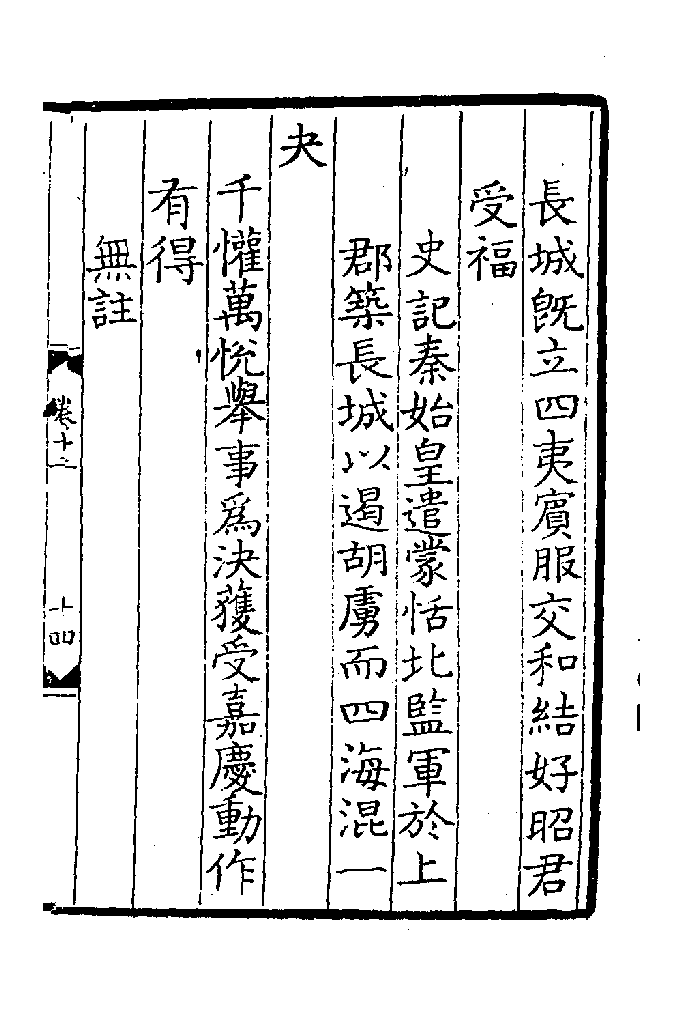 長城旣立四夷賓服交和結好昭君
受福
史記秦始皇遣蒙恬北監軍於上
郡築長城以遏胡虜而四海混一
夬
千懽萬悅舉事爲決獲受嘉慶動作
有得
無註
卷十二
十四